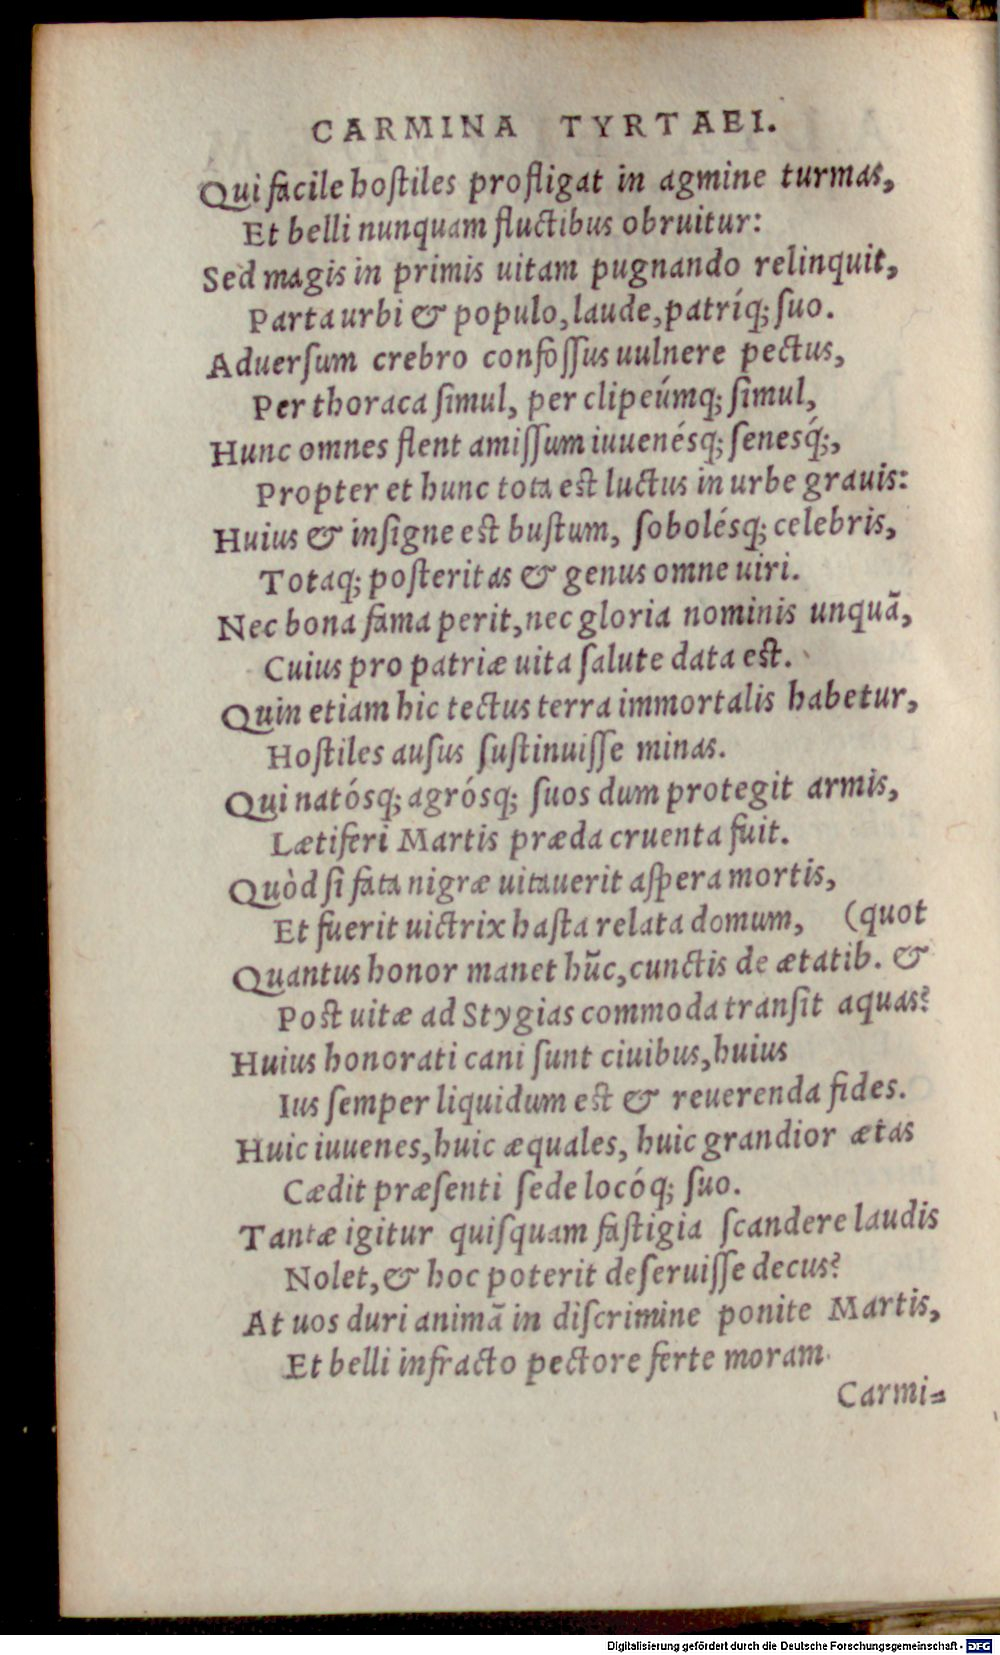 CARMINA TYRTAEI.
Qui facile hoſtiles profligat in agmine turmas,
Et belli nunquam fluctibus obruitur:
Sed magis in primis uitam pugnando relinquit,
Parta urbi & populo, laude, patríq; ſuo.
Aduerſum crebro confoſſus uulnere pectus,
Per thoraca ſimul, per clipeúmq; ſimul,
Hunc omnes flent amiſſum iuuenésq; ſenesq́;,
Propter et hunc tota est luctus in urbe grauis:
Huius & inſigne est buſtum, ſobolésq; celebris,
Totaq; poſteritas & genus omne uiri.
Nec bona fama perit, nec gloria nominis unquã,
Cuius pro patriæ uita ſalute data est.
Quin etiam hic tectus terra immortalis habetur,
Hoſtiles auſus ſuſtinuiſſe minas.
Qui natósq; agrósq; ſuos dum protegit armis,
Lætiferi Martis præda cruenta fuit.
Quòd ſi fata nigræ uitauerit aſpera mortis,
Et fuerit uictrix haſta relata domum, (quot
Quantus honor manet hũc, cunctis de ætatib. &
Post uitæ ad Stygias commoda tranſit aquas?
Huius honorati cani ſunt ciuibus, huius
Ius ſemper liquidum est & reuerenda fides.
Huic iuuenes, huic æquales, huic grandior ætas
Cædit præſenti ſede locóq; ſuo.
Tantæ igitur quiſquam faſtigia ſcandere laudis
Nolet, & hoc poterit deſeruiſſe decus?
At uos duri animã in diſcrimine ponite Martis,
Et belli infracto pectore ferte moram.
Carmi=
Digitalisierung gefördert durch die Deutsche Forschungsgemeinschaft - DFG